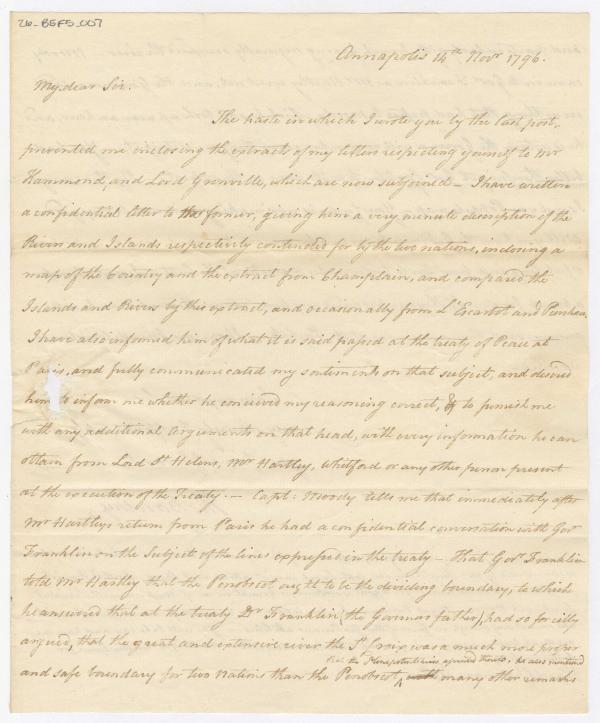 26-BGFS_007
Annapolis 14th Novr 1796.
My dear Sir.
The haste in which I wrote you by the last post,
prevented me inclosing the extracts of my letters respecting yourself to Mr
Hammond, and Lord Grenville, which are now subjoined — I have written
a confidential letter to the former, giving him a very minute description of the
Rivers and Islands respectively contended for by the two nations, inclosing a
map of the Country and the extract from Champlain, and compared the
Islands and Rivers by this extract, and occasionally from L'Escarbot and
I have also informed him of what it is said passed at the treaty of Peace at
Paris, and fully communicated my sentiments on that subject, and desired
him to inform me whether he conceived my reasoning correct, & to furnish me
with any additional Arguments on that head, with every information he can
obtain from Lord St Helens, Mr Hartley, Whitford or any other person present
at the execution of the Treaty. — Capt: Moody tells me that immediately after
Mr Hartleys return from Paris he had a confidential conversation with Govr
Franklin on the Subject of the lines expressed in the treaty — That Govr Franklin
told Mr Hartley that the Penobscot ought to be the dividing boundary, to which
he answered that at the treaty Dr Franklin (the Governor father), had so forcibly
argued, that the great and extensive river the St Croix was a much more proper
that the Plenipotentiaries agreed thereto, he also mentioned
and safe boundary for two Nations than the Penobscot, ‸ with many other remarks